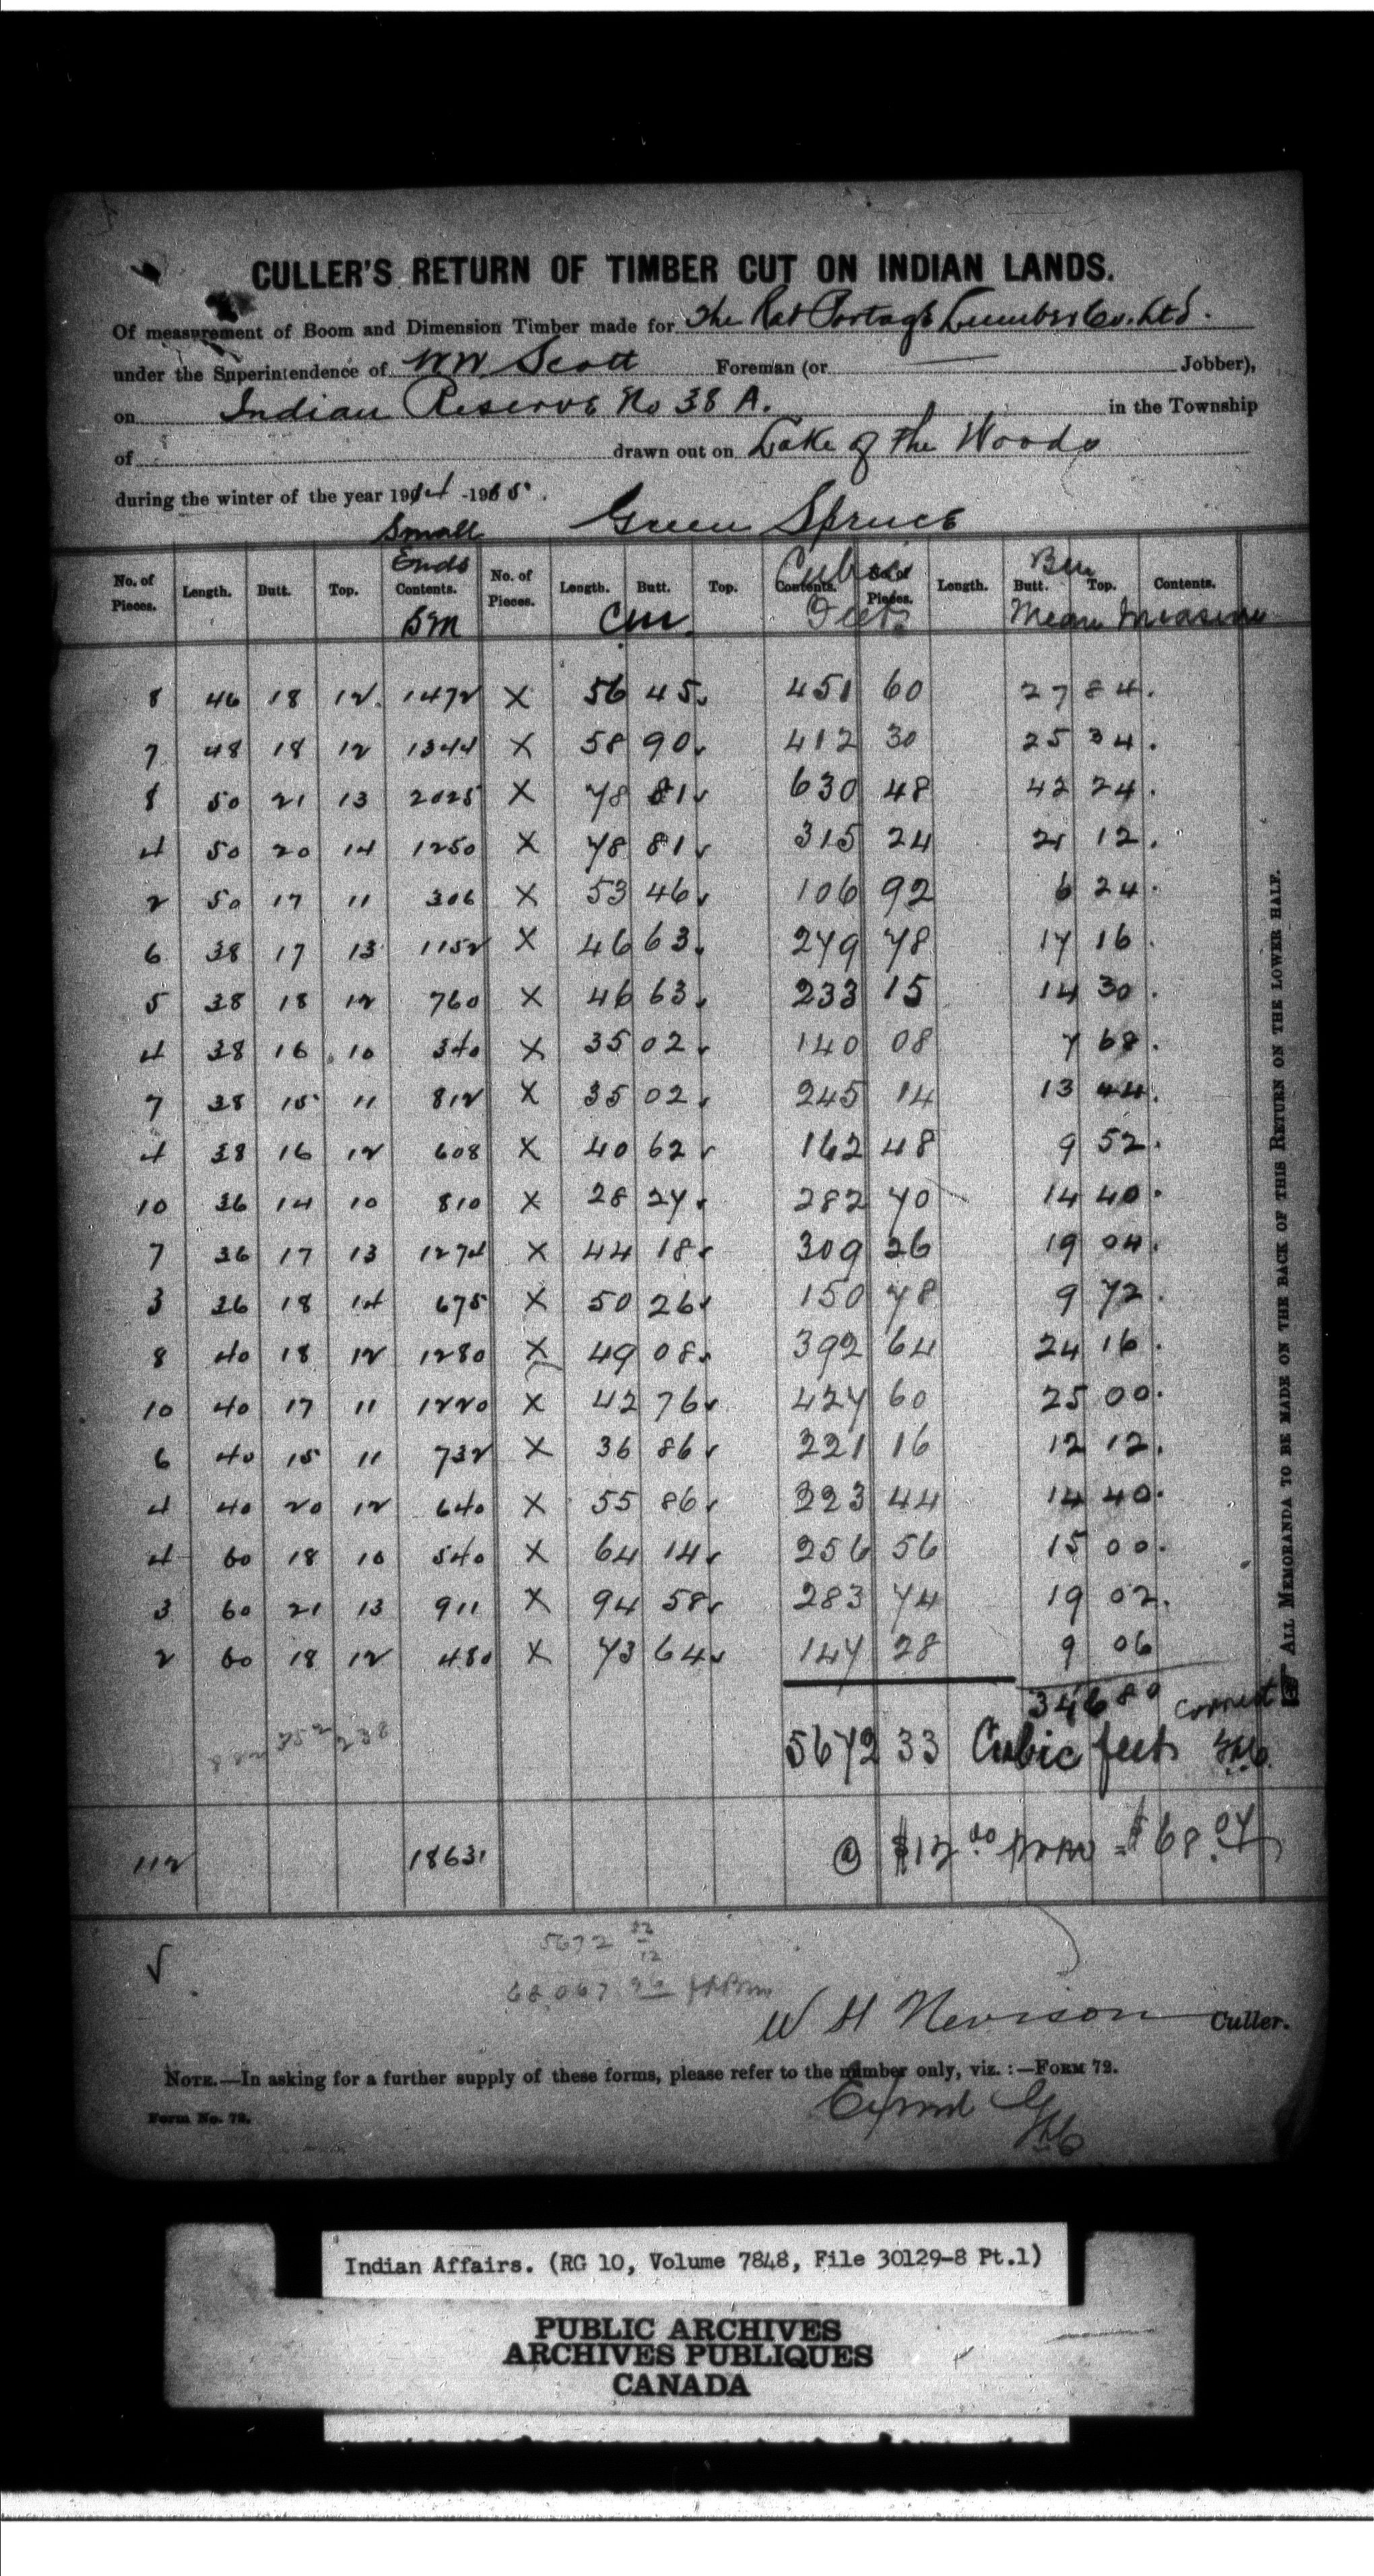 CULLER'S RETURN OF TIMBER CUT ON INDIAN LANDS.
Of measurement of Boom and Dimension Timber made for The Rat Portage Lumber Co. Ltd.
under the Superintendence of W W Scott Foreman (or Jobber),
on Indian Reserve No 38 A. in the Township
of drawn out on Lake of the Woods
during the winter of the year 1904 -1905.
Small Green Spruce
Ends Cubic Bm
No. of Pieces. Length. Butt. Top. Contents. No. of Pieces. Length. Butt. Top. Contents. No. of Pieces. Length. Butt. Top. Contents.
BM Feet Mean Measure
8 46 18 12 1472 X 56 45 451 60 27 84.
7 48 18 12 1344 X 58 90 412 30 25 34.
8 50 21 13 2025 X 78 81 630 48 42 24.
4 50 20 14 1250 X 78 81 315 24 21 12.
2 50 17 11 306 X 53 46 106 92 6 24.
6 38 17 13 1152 X 46 63 279 78 17 16.
5 38 18 12 760 X 46 63 233 15 14 30.
4 38 16 10 340 X 35 02 140 08 7 68.
7 38 15 11 812 X 35 02 245 14 13 44.
4 38 16 12 608 X 40 62 162 48 9 52.
10 36 14 10 810 X 28 27 282 70 14 40.
7 36 17 13 1274 X 44 18 309 26 19 04.
3 36 18 14 675 X 50 26 150 78 9 72.
8 40 18 12 1280 X 49 08 392 64 24 16.
10 40 17 11 1220 X 42 76 427 60 25 00.
6 40 15 11 732 X 36 86 221 16 12 12.
4 40 20 12 640 X 55 86 223 44 14 40.
4 60 18 10 540 X 64 14 256 56 15 00.
3 60 21 13 911 X 94 58 283 74 19 02.
2 60 18 12 480 X 73 64 147 28 9 06
34680 correct
5672 33 Cubic feet
112 18631 @ $12.00 = $68.07
5672 33
12
68,067 96 ft Bm
W H Nevison Culler.
NOTE.—In asking for a further supply of these forms, please refer to the number only, viz. :—FORM 72.
Form No. 72.
ALL MEMORANDA TO BE MADE ON THE BACK OF THIS RETURN ON THE LOWER HALF.
Indian Affairs. (RG 10, Volume 7848, File 30129-8 Pt.1)
PUBLIC ARCHIVES
ARCHIVES PUBLIQUES
CANADA